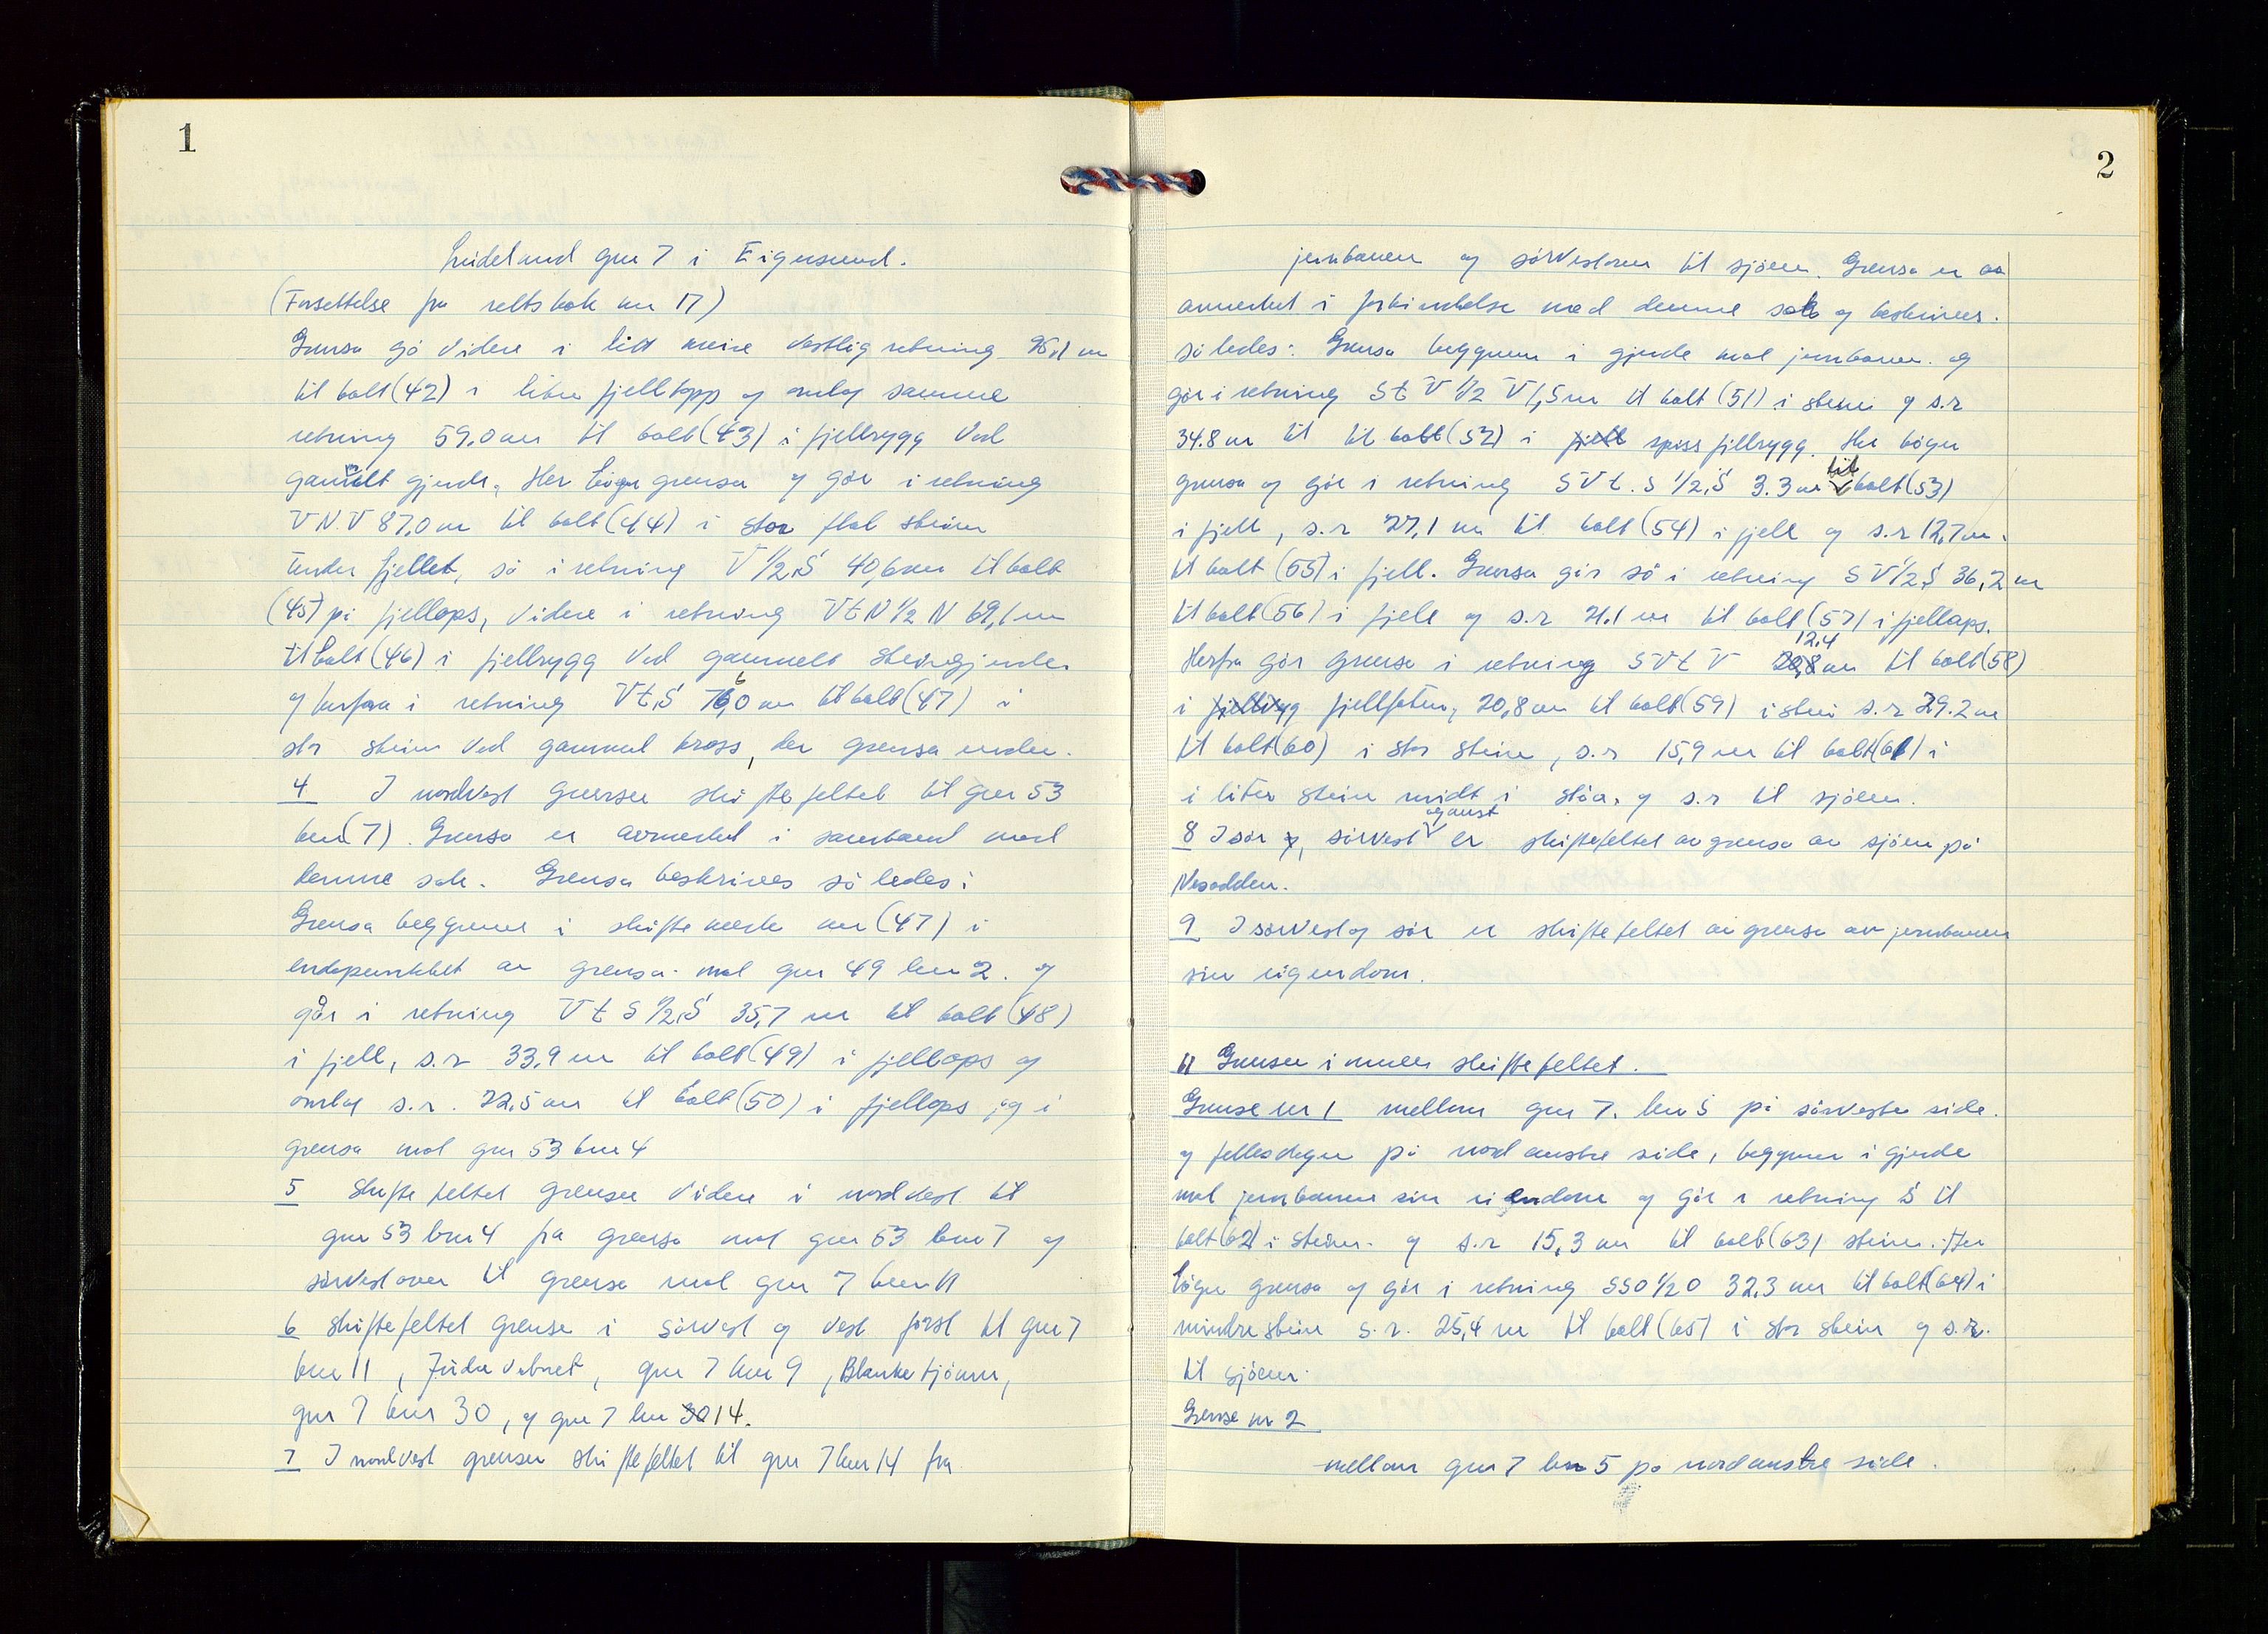 1
Leidland gnr 7 i Eigersund.
(Forsettelse fra rettsbok nr 17)
Grensa gå videre i litt meire vestlig retning m
til bolt (42) i liten fjelltopp og omlag samme
retning 59,0 m til bolt (43) i fjellrygg ved
gammalt gjerde, Her bøyer grensa og går i retning
V N.V 87,0 m til bolt (44) i stor flat stein
under fjellet, så i retning V 1/2 S 40,6 m til bolt
(45) på fjellaps, videre i retning VtN 1/2 N 69,1 m
til bolt (46) i fjellrygg ved gammelt steingjerde
og herfra i retning VtS 76,0 m til bolt (47) i
str stein ved gammel kross, der grensa ender.
4 I nordvest grenser skiftefeltet til gnr 53
bnr (7). Grensa er avmerket i samband med
denne sak. Grensa beskrives således:
Grensa beggynner i skiftemerke nr (47) i
endepunktet av grensa mot gnr 49 bnr 2. og
går i retning Vt S 1/2 S 35,7 m til bolt (48)
i fjell, s.r 33,9 m til bolt (49) i fjellaps og
omlag s.r. 22,5 m til bolt (50) i fjellaps og i
grensa mot gnr 53 bnr 4
5 Skiftefeltet grenser videre i nordvest til
gnr 53 bnr 4 fra grensa mot gnr 53 bnr 7 og
sørvestover til grensa mot gnr 7 bnr 11
6 Skiftefeltet grense i sørvest og vest først til gnr 7
bnr 11, vatnet, gnr 7 bnr 9, Blanketjönn,
gnr 7 bnr 30, og gnr 7 bnr 30 14.
7 I nordvest grenser skiftefeltet til gnr 7 bnr 14 fra
2
jernbanen og sørvestover til sjøen. Grensa er av
anmerket i forbindelse med denne sak og beskrives
således: Grensa beggynner i gjerde mot jernbanen. og
går i retning St V 1/2 V 1,5 m til bolt (51) i stein og s.r
34.8 m til til bolt (52) i fjell spiss fjellrygg. Her böger
grensa og går i retning SVt. S 1/2 S 3.3 m til bolt (53)
i fjell, s.r 27,1 m til bolt (54) i fjell og s.r 12,7 m.
til bolt (55) i fjell. Grensa går så i retning SV 1/2 S 36,2 m
til bolt (56) i fjell og s.r 21.1 m til bolt (57) i fjellaps.
Herfra går grensa i retning SVt V 20,8 12,4 m til bolt (58)
i fjellrygg fjellfoten, 20,8 m til bolt (59) i stein s.r 29.2 m
til bolt (60) i stor stein, s.r 15,9 m til bolt (61) i
i liten stein midt i stöa, og s.r til sjöen.
8 I sör og, sörvest og aust er skiftefeltet avgrensa av sjöen på
Nesodden.
9 I sørvest og sör er skiftefeltet avgrensa av jernbanen
sin eigendom.
11 Grenser innen skiftefeltet.
Grense nr 1 mellom gnr 7. bnr 5 på sörvestre side.
og felleseigen på nordaustre side, beggynner i gjerde
mot jernbanen sin eigendom og går i retning S til
bolt (62) i stein. og s.r 15,3 m til bolt (63) stein. Her
böger grensa og går i retning SSO 1/2 O 32,3 m til bolt (64) i
mindre stein s.r. 25,4 m til bolt (65) i stor stein og s.r.
til sjöen.
Grense nr 2
mellom gnr 7 bnr 5 på nordaustre side.